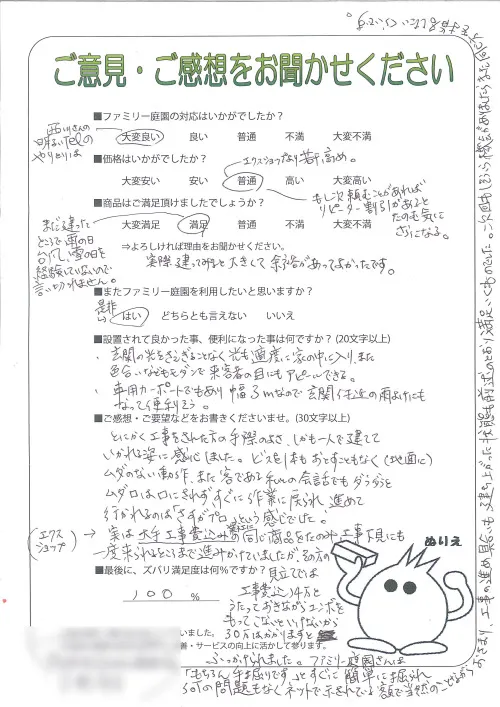 ご意見・ご感想をお聞かせください
■ファミリー庭園の対応はいかがでしたか？
西川さんの
明るいTELの
やりとりは
大変良い 良い 普通 不満 大変不満
■価格はいかがでしたか？
エクスショップより若干高め。
大変安い 安い 普通 高い 大変高い
もし次頼むことがあれば
リピーター割引があると
たのも気に
さになる。
■商品はご満足頂けましたでしょうか？
大変満足 満足 普通 不満 大変不満
まだ建った
ところで雨の日
台風、雪の日を
経験していないので
言い切れません。
⇒よろしければ理由をお聞かせください。
実際建って外と大きくて余裕があってよかったです。
■またファミリー庭園を利用したいと思いますか？
是非
はい どちらとも言えない いいえ
■設置されて良かった事、便利になった事は何ですか？ (20文字以上)
・玄関の光をさえぎることなく光も適度に家の中に入り、また
色合いなどもモダンで来客者の目にもアピールできる。
・車用カーポートでもあり幅3mなので玄関付近の雨よけにも
なって便利そう。
■ご感想・ご要望などをお書きくださいませ。(30文字以上)
とにかく工事をされた方の手際のよさ、しかも一人で建てて
いかれる姿に感心しました。ビスを1本もおとすこともなく(地面に)
ムダのない動作、また客である私との会話でもダラダラと
ムダ口は口にされずすぐに作業に戻られ、進めて
行かれるのは「さすがプロ」という感じでした。
(エクスショップ)→実は大手工事費込みの同じ商品をたのみ工事下見にも
一度来られるところまで進みかけていましたが、その方の
■最後に、ズバリ満足度は何％ですか？
見立てでは
100 %
工事費込14万と
うたっておきながらユンボを
もってこないといけないから
30万はかかりますと
ぶっかけられました。ファミリー庭園さんは
「もちろん手掘りです」とすぐに簡単に掘られ
何の問題もなくネットで示されている額で当然のことながら
おさまり、工事の進め具合も建ち上がった状態も
ぬりえ
いました。
善・サービスの向上に活かして参ります。